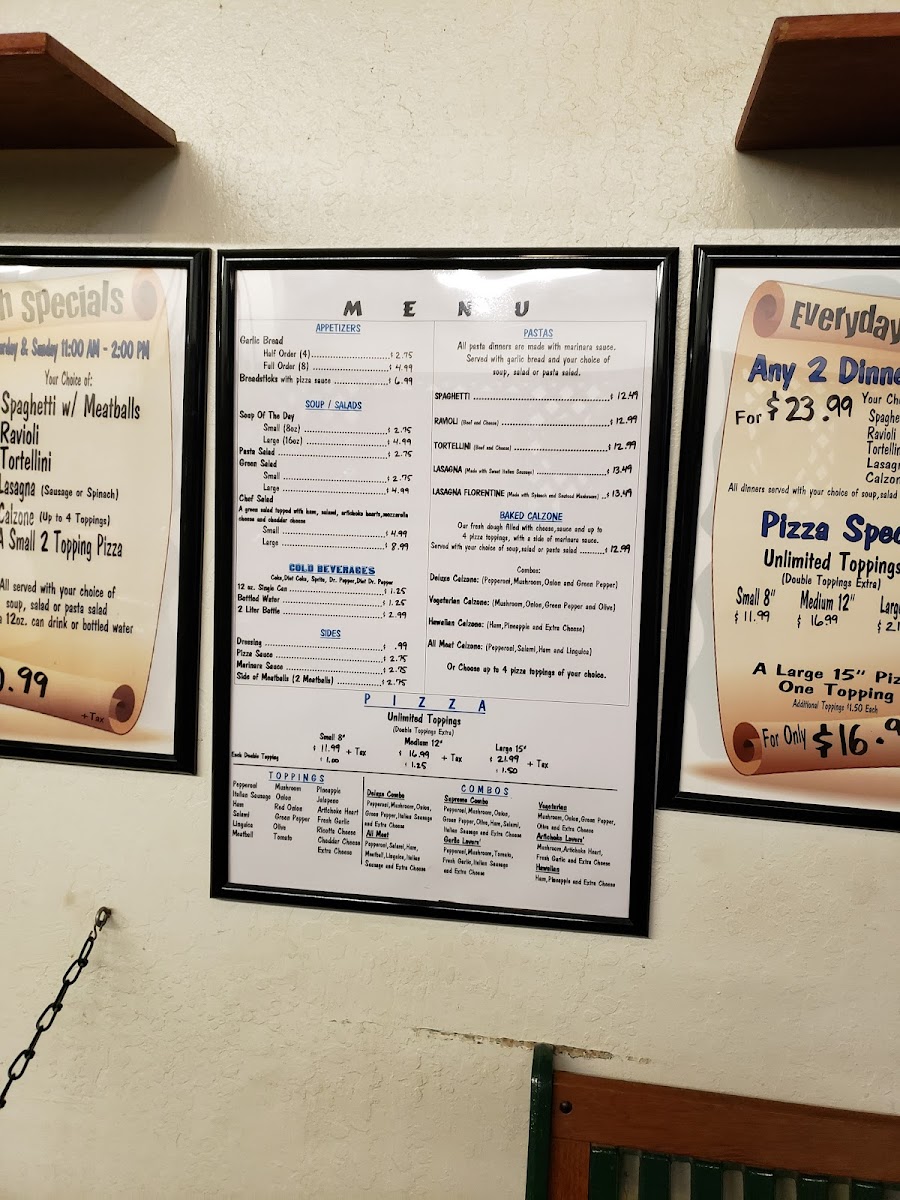 h Specials
urday & Sunday 11:00 AM - 2:00 PM
Your Choice of:
Spaghetti w/ Meatballs
Ravioli
Tortellini
Lasagna (Sausage or Spinach)
Calzone (Up to 4 Toppings)
A Small 2 Topping Pizza
All served with your choice of
soup, salad or pasta salad
a 12oz. can drink or bottled water
.99
+Tax
MENU
APPETIZERS
Garlic Bread
Half Order (4) $ 2.75
Full Order (8) $ 4.99
Breadsticks with pizza sauce $ 6.99
SOUP / SALADS
Soup Of The Day
Small (8oz) $ 2.75
Large (16oz) $ 4.99
Pasta Salad $ 2.75
Green Salad
Small $ 2.75
Large $ 4.99
Chef Salad
A green salad topped with ham, salami, artichoke hearts, mozzarella
cheese and cheddar cheese
Small $ 4.99
Large $ 8.99
COLD BEVERAGES
Coke, Diet Coke, Sprite, Dr. Pepper, Diet Dr. Pepper
12 oz. Single Can $ 1.25
Bottled Water $ 1.25
2 Liter Bottle $ 2.99
SIDES
Dressing $ .99
Pizza Sauce $ 2.75
Marinara Sauce $ 2.75
Side of Meatballs (2 Meatballs) $ 2.75
PASTAS
All pasta dinners are made with marinara sauce.
Served with garlic bread and your choice of
soup, salad or pasta salad.
SPAGHETTI $ 12.49
RAVIOLI (Beef and Cheese) $ 12.99
TORTELLINI (Beef and Cheese) $ 12.99
LASAGNA (Made with Sweet Italian Sausage) $ 13.49
LASAGNA FLORENTINE (Made with Spinach and Seafood Mushrooms) $ 13.49
BAKED CALZONE
Our fresh dough filled with cheese, sauce and up to
4 pizza toppings, with a side of marinara sauce.
Served with your choice of soup, salad or pasta salad $ 12.99
Combos:
Deluxe Calzone: (Pepperoni, Mushroom, Onion and Green Pepper)
Vegetarian Calzone: (Mushroom, Onion, Green Pepper and Olive)
Hawaiian Calzone: (Ham, Pineapple and Extra Cheese)
All Meat Calzone: (Pepperoni, Salami, Ham and Linguica)
Or Choose up to 4 pizza toppings of your choice.
PIZZA
Unlimited Toppings
(Double Toppings Extra)
Small 8" Medium 12" Large 15"
$ 11.99 + Tax $ 16.99 + Tax $ 21.99 + Tax
Each Double Topping $ 1.00 $ 1.25 $ 1.50
TOPPINGS
Pepperoni
Italian Sausage
Ham
Salami
Linguica
Meatball
Mushroom
Onion
Red Onion
Green Pepper
Olive
Tomato
Pineapple
Jalapeno
Artichoke Heart
Fresh Garlic
Ricotta Cheese
Cheddar Cheese
Extra Cheese
COMBOS
Deluxe Combo
Pepperoni, Mushroom, Onion,
Green Pepper, Italian Sausage
and Extra Cheese
All Meat
Pepperoni, Salami, Ham,
Meatball, Linguica, Italian
Sausage and Extra Cheese
Supreme Combo
Pepperoni, Mushroom, Onion,
Green Pepper, Olive, Ham, Salami,
Italian Sausage and Extra Cheese
Garlic Lovers'
Pepperoni, Mushroom, Tomato,
Fresh Garlic, Italian Sausage
and Extra Cheese
Vegetarian
Mushroom, Onion, Green Pepper,
Olive and Extra Cheese
Artichoke Lovers'
Mushroom, Artichoke Heart,
Fresh Garlic and Extra Cheese
Hawaiian
Ham, Pineapple and Extra Cheese
Everyday
Any 2 Dinne
For $23.99
Your Cho
Spaghe
Ravioli
Tortellin
Lasagn
Calzon
All dinners served with your choice of soup, salad
Pizza Spec
Unlimited Toppings
(Double Toppings Extra)
Small 8" Medium 12" Larg
$ 11.99 $ 16.99 $ 21
A Large 15" Piz
One Topping
Additional Toppings $1.50 Each
For Only $16.9